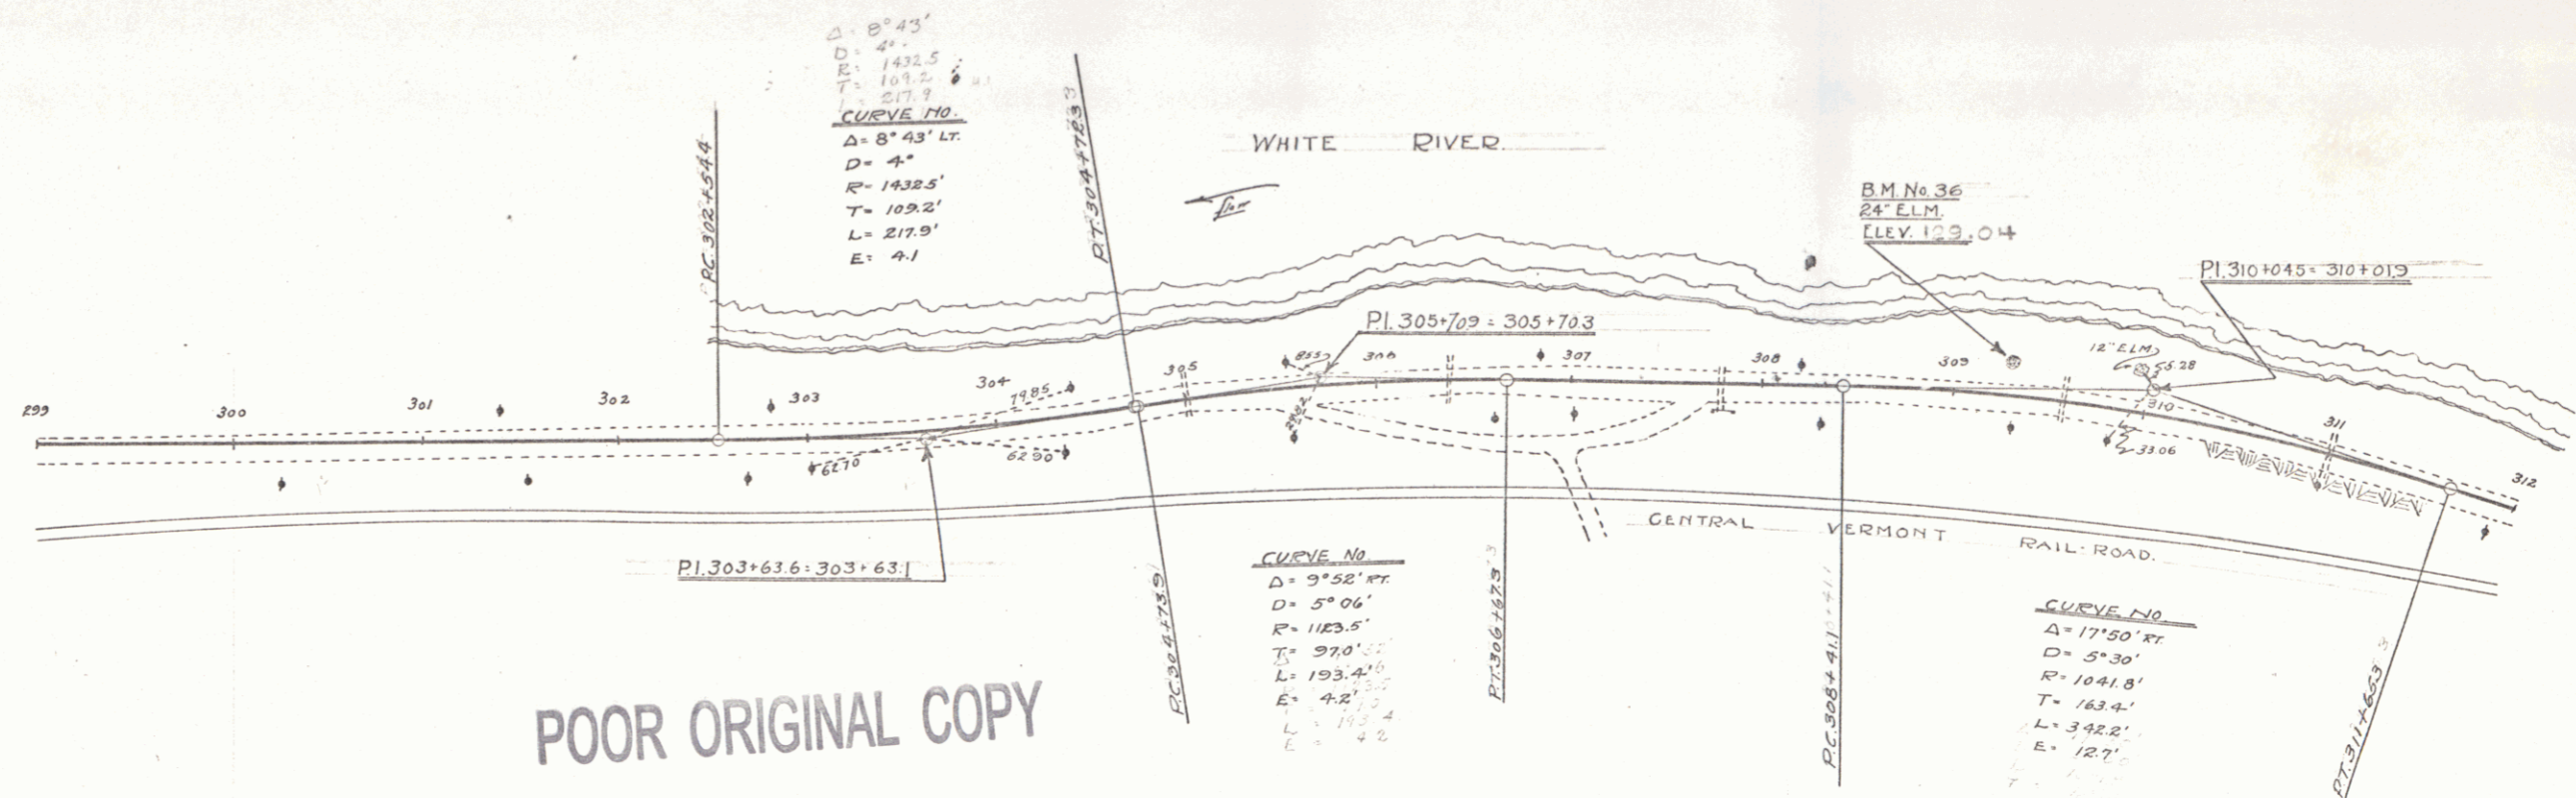 Δ= 8°43'
D= 4°
R= 1432.5
T= 109.2
L= 217.9
CURVE NO.
Δ= 8°43' LT.
D= 4°
R= 1432.5'
T= 109.2'
L= 217.9'
E= 4.1
P.C. 302+54.4
P.T. 304+72.3
WHITE RIVER.
flow
B.M. No. 36
24" ELM.
ELEV. 129.04
P.I. 310+04.5= 310+01.9
P.I. 305+70.9 = 305+70.3
299
300
301
302
303
304
305
306
307
308
309
310
311
312
79.85
62.70
62.90
12" ELM
55.28
33.06
P.I. 303+63.6= 303+63.1
CENTRAL VERMONT RAIL-ROAD.
P.C. 304+73.9
CURVE NO.
Δ= 9°52' RT.
D= 5°06'
R= 1123.5'
T= 97.0'
L= 193.4'
E= 4.2'
L 193.4
E = 4.2
P.T. 306+67.3
P.C. 308+41.1
CURVE NO.
Δ= 17°50' RT.
D= 5°30'
R= 1041.8'
T= 163.4'
L= 342.2'
E= 12.7'
P.T. 311+
POOR ORIGINAL COPY